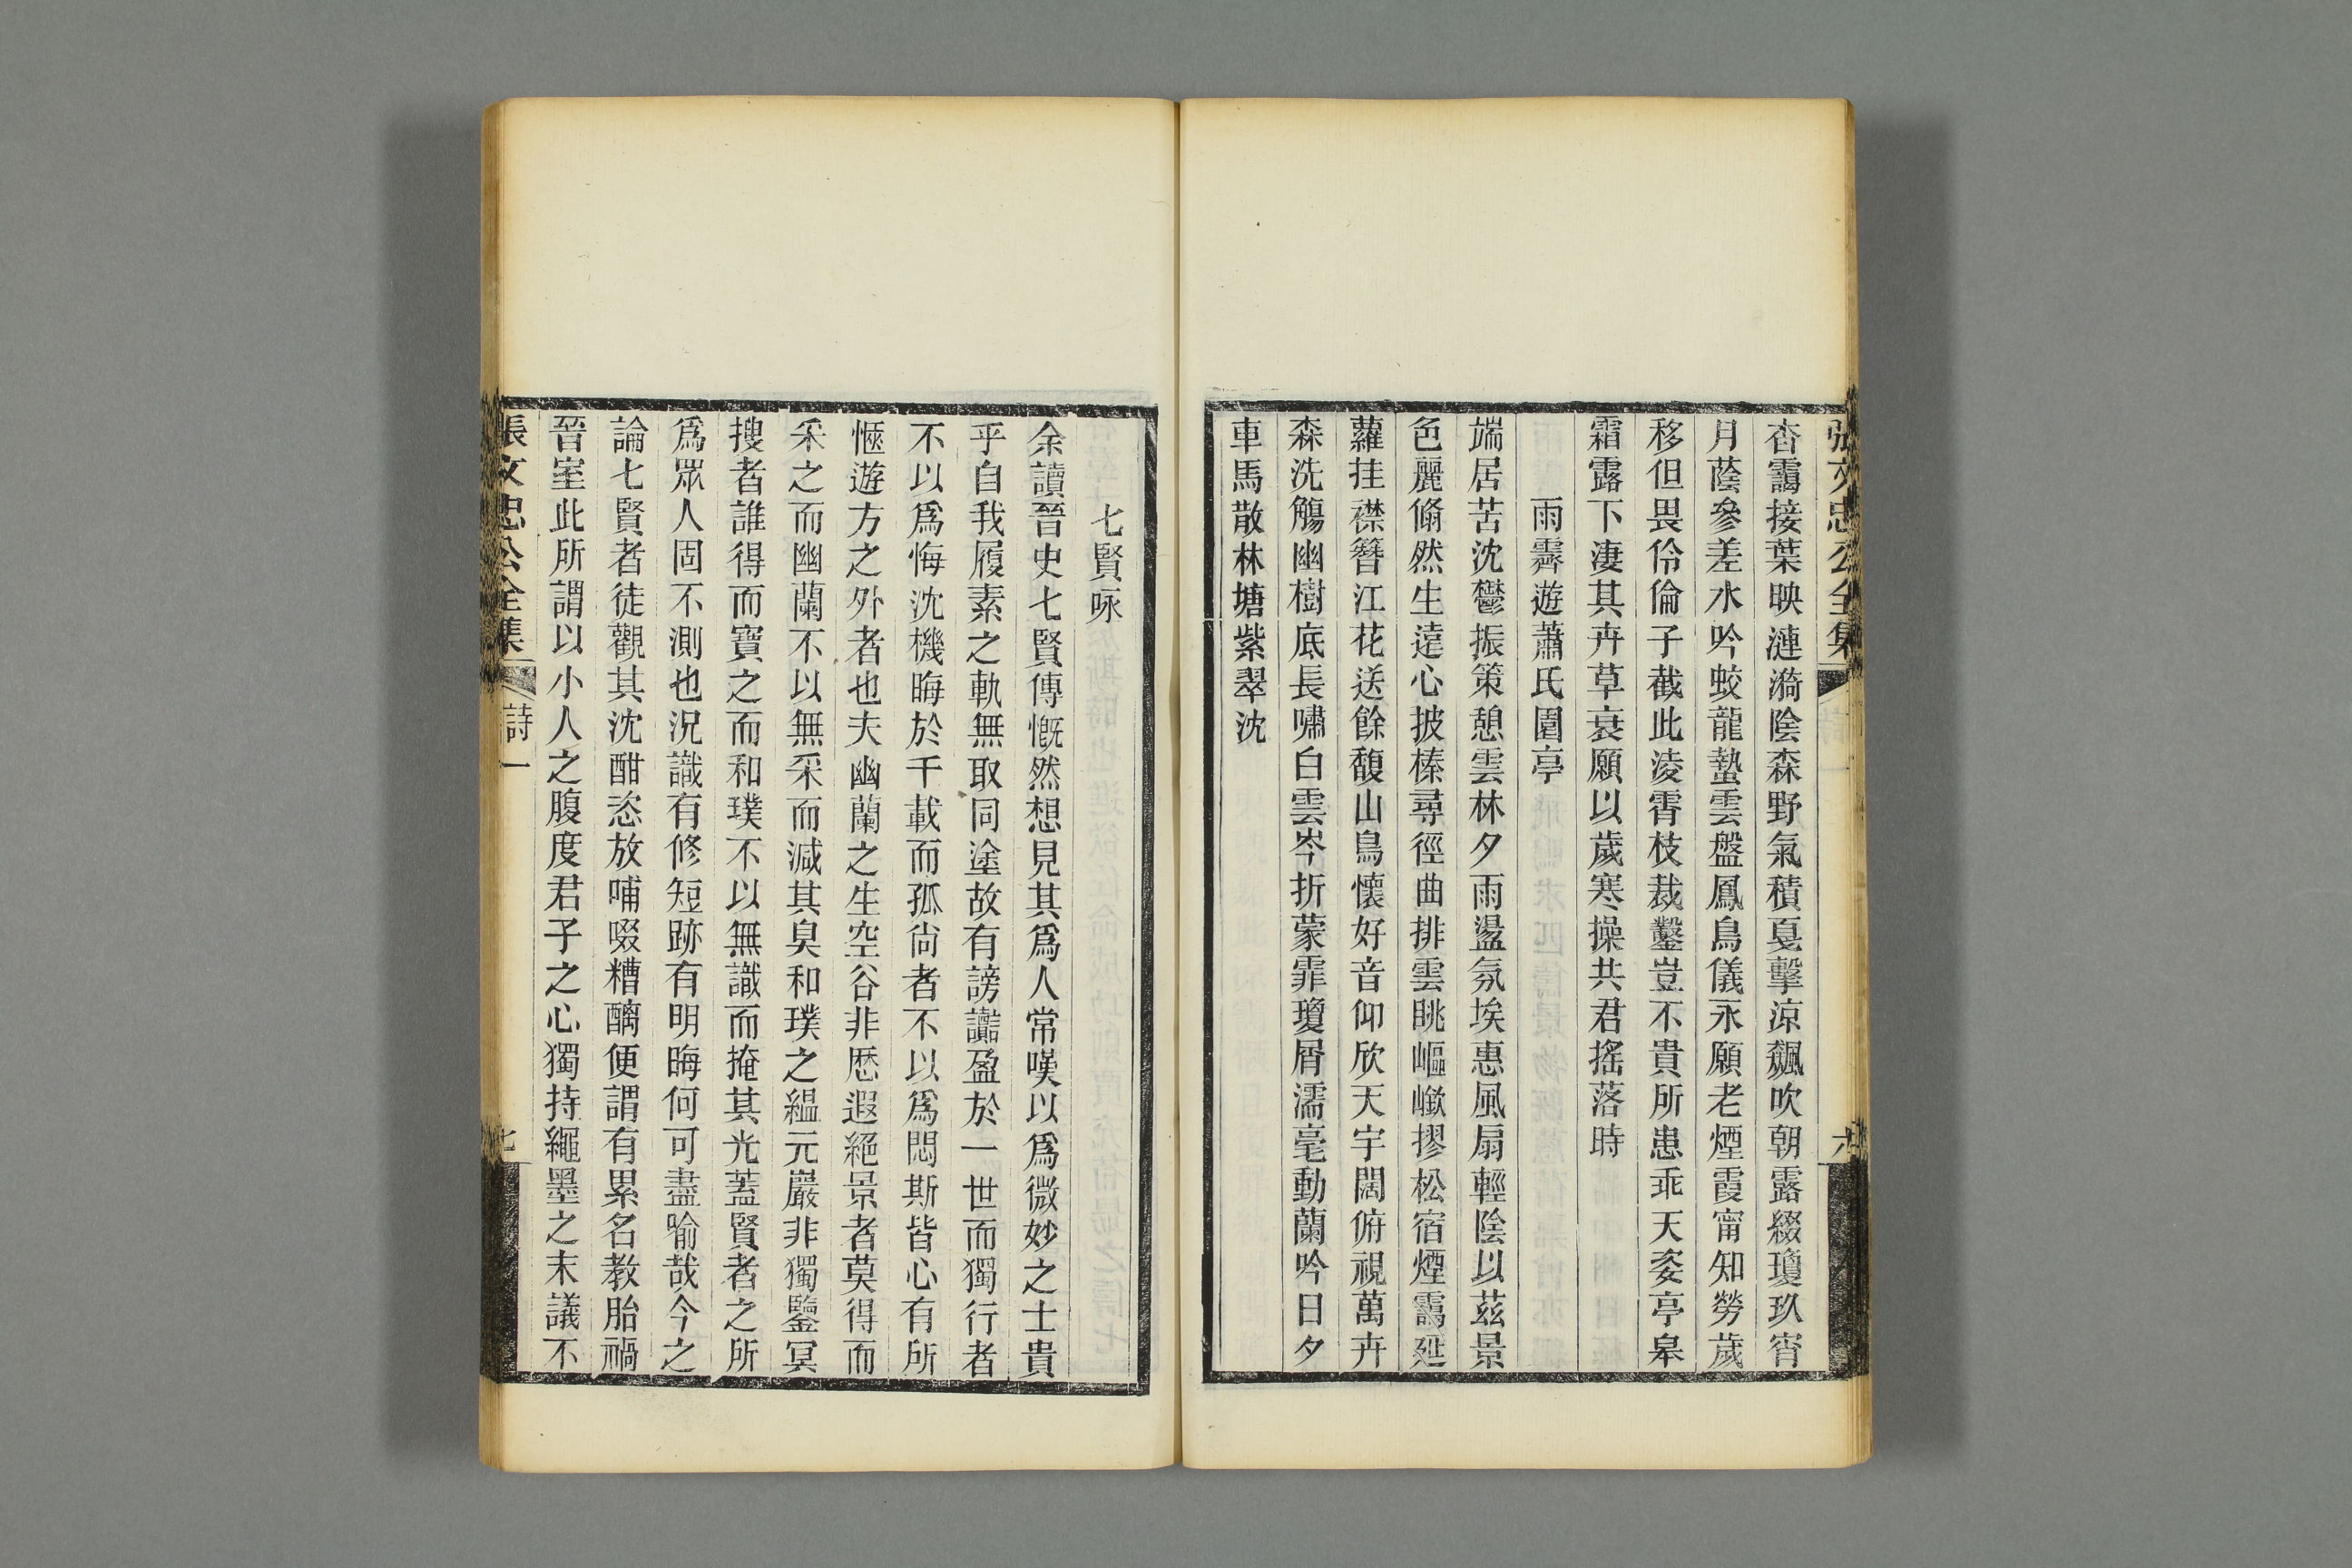 張文忠公全集
六
杳靄接葉映漣漪陰森野氣積戛擊涼飆吹朝露綴瓊玖宵
月蔭參差水吟蛟龍蟄雲盤鳳鳥儀永願老煙霞甯知勞歲
移但畏伶倫子截此淩霄枝裁鑿豈不貴所患乖天姿亭皋
霜露下淒其卉草衰願以歲寒操共君搖落時
雨霽遊蕭氏園亭
端居苦沈鬱振策憩雲林夕雨盪氛埃惠風扇輕陰以茲景
色麗翛然生遠心披榛尋徑曲排雲眺嶇嶔摎松宿煙靄延
蘿挂襟簪江花送餘馥山鳥懷好音仰欣天宇闊俯視萬卉
森洗觴幽樹底長嘯白雲岑折蒙霏瓊屑濡毫動蘭吟日夕
車馬散林塘紫翠沈
七賢咏
余讀晉史七賢傳慨然想見其爲人常嘆以爲微妙之士貴
乎自我履素之軌無取同塗故有謗讟盈於一世而獨行者
不以爲悔沈機晦於千載而孤尙者不以爲悶斯皆心有所
愜遊方之外者也夫幽蘭之生空谷非歴遐絕景者莫得而
采之而幽蘭不以無采而減其臭和璞之緼元巖非獨鑒冥
搜者誰得而寶之而和璞不以無識而掩其光蓋賢者之所
爲眾人固不測也況識有修短跡有明晦何可盡喻哉今之
論七賢者徒觀其沈酣恣放哺啜糟醨便謂有累名教胎禍
晉室此所謂以小人之腹度君子之心獨持繩墨之末議不
張文忠公全集
詩一
七